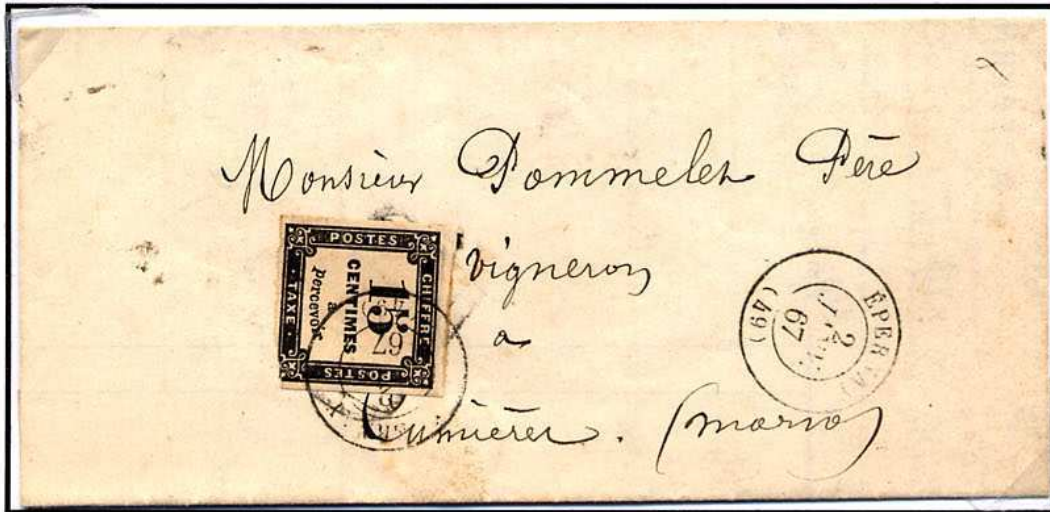 Monsieur Pommelet Père
vigneron
à
Cumières. (Marne)
POSTES
CHIFFRE
TAXE
POSTES
15
CENTIMES
à
percevoir
67
ÉPERNAY
2
JANV.
67
(49)